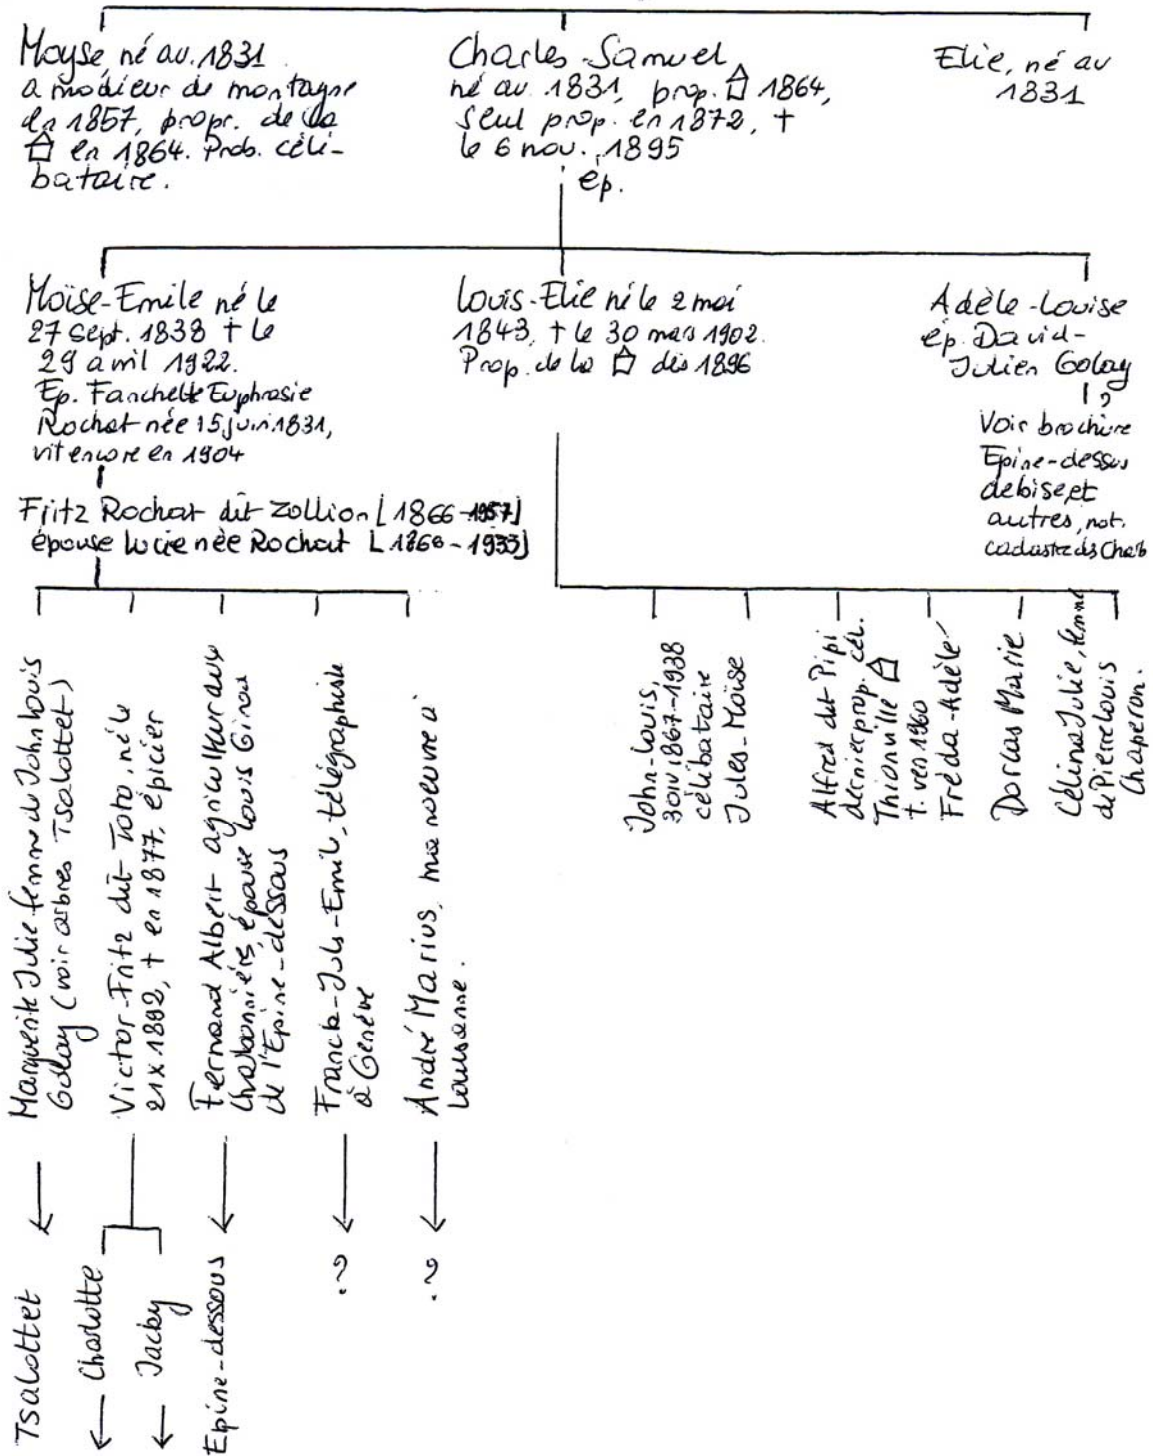 Moyse, né av. 1831
amodieur de montagne
en 1857, propr. de la
en 1864. Prob. céli-
bataire.
Charles-Samuel,
né av. 1831, prop. 1864,
seul prop. en 1872, †
le 6 nov. 1895
ép.
Elie, né av
1831
Moïse-Emile né le
27 sept. 1838 † le
29 avril 1922.
Ep. Fanchette Euphrasie
Rochat née 15 juin 1831,
vit encore en 1904
Louis-Elie né le 2 mai
1843, † le 30 mars 1902.
Prop. de la dès 1896
Adèle-Louise
ép. David-
Julien Golay
?
Voir brochure
Epine-dessus
de bise et
autres, not.
cadastre ds Charb
Fritz Rochat dit Zollion [1866-1957]
épouse Lucie née Rochat [1868-1933]
Marguerite Julie femme de John Louis
Golay (voir arbres Tsalottet)
Victor-Fritz dit Toto, né le
21 x 1892, † en 1877, épicier
Fernand Albert agriculteur aux
Charbonnières, épouse Louis Girou
de l'Epine-dessous
Franck-Juls-Emil, télégraphiste
à Genève
André Marius, manoeuvre à
Lausanne.
John-Louis,
1867-1938
célibataire
Jules-Moïse
Alfred dit Pipi
dernier prop. cél.
Thionville
†. vers 1960
Fréda-Adèle
Dorcas Marie
Célina Julie, femme
de Pierre Louis
Chaperon.
Tsalottet
Charlotte
Jacky
Epine-dessous
?
?